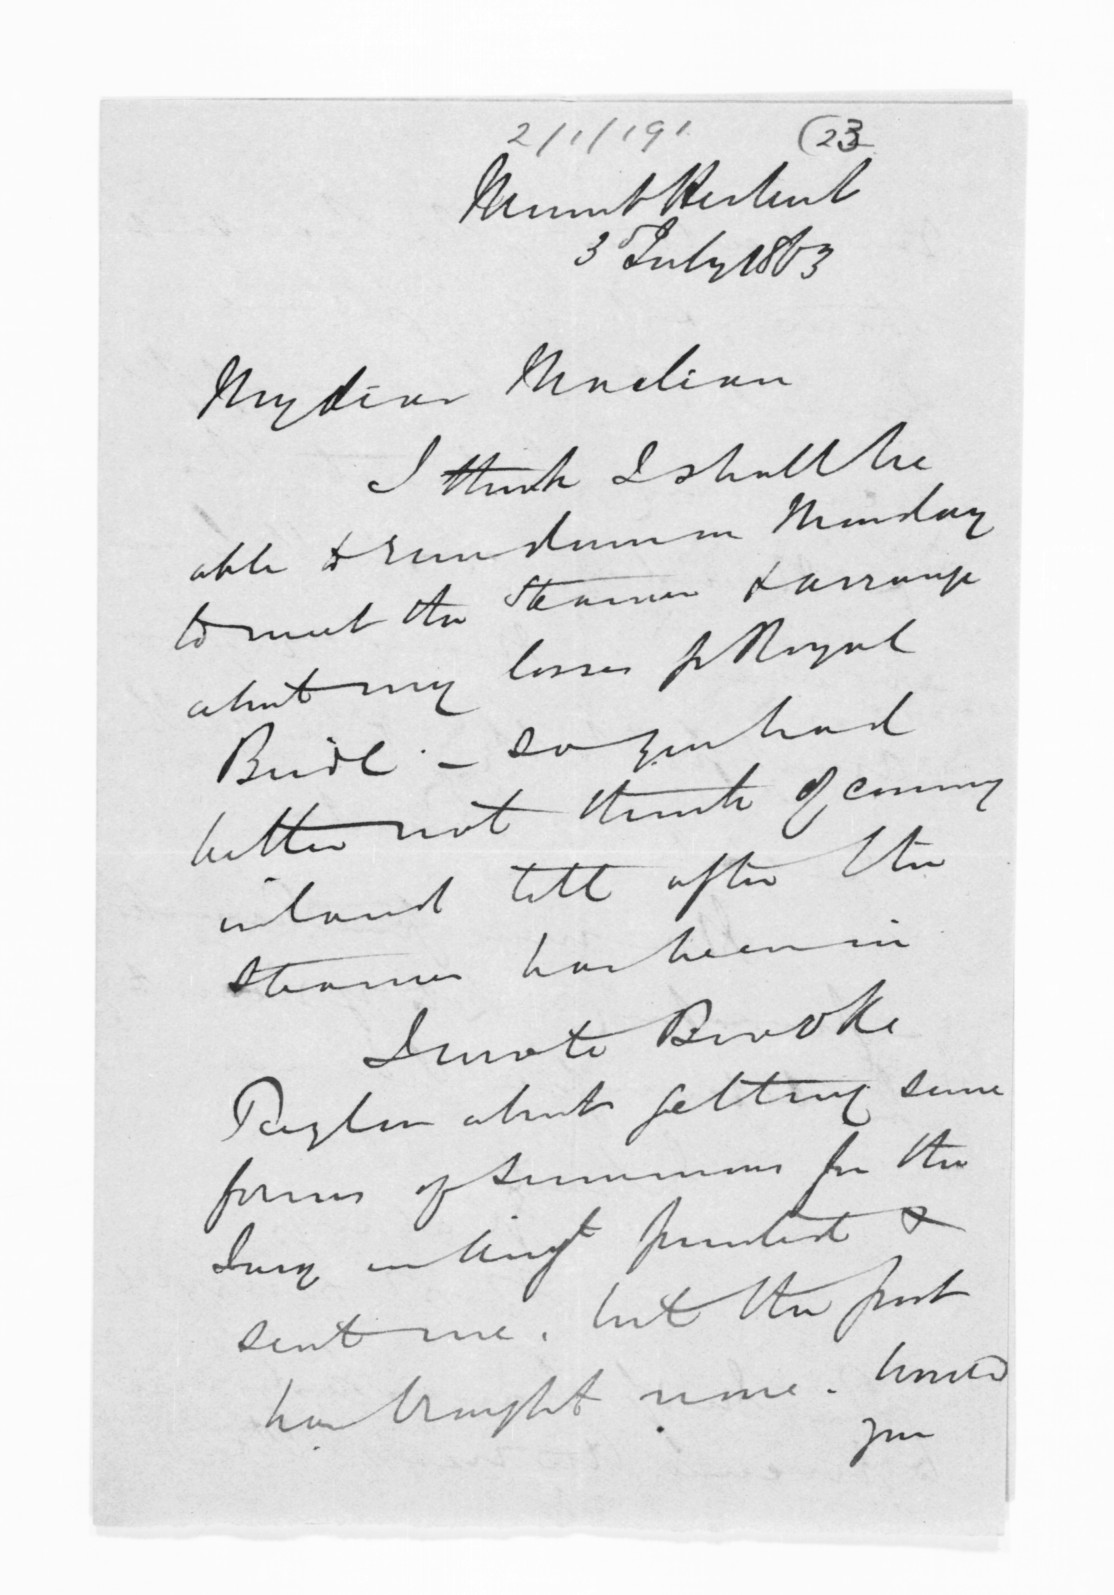 2/1/191
(23
Mount Herbert
3 July 1863
My dear Maclean
I think I shall be
able to run down on Monday
to meet the Steamer & arrange
about my losses pr Royal
Bride. — so you had
better not think of coming
inland till after the
Steamer has been in
I wrote Brooke
Taylor about getting some
forms of summons for the
Jury printed &
sent me. but the post
has brought none. would
you